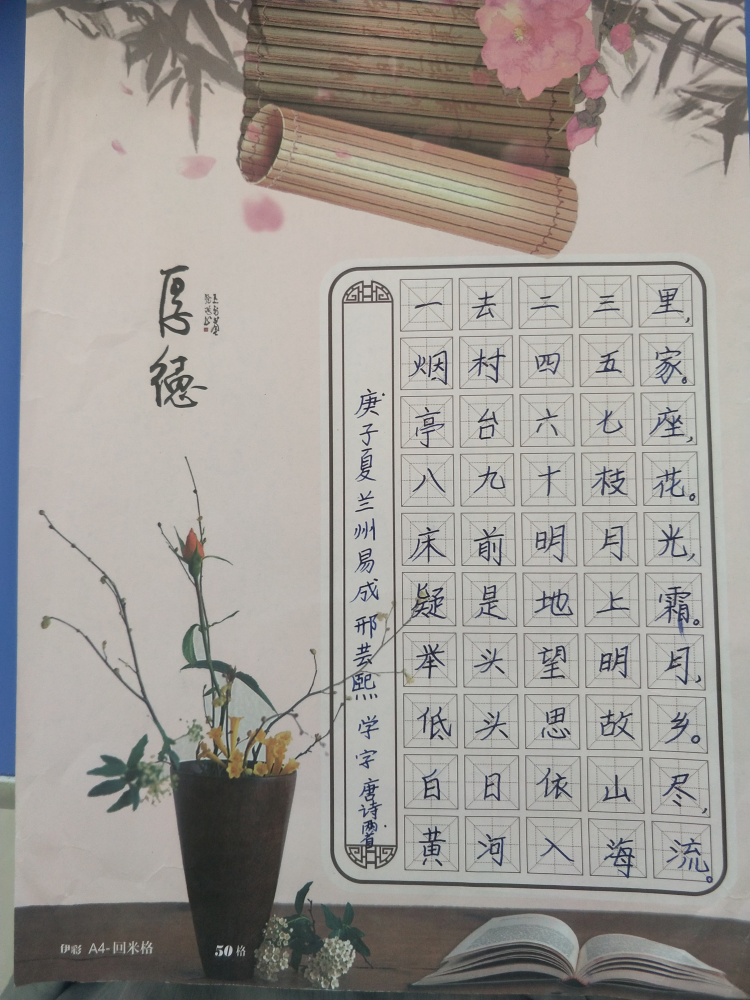 厚德
一去二三里，
烟村四五家。
亭台六七座，
八九十枝花。
床前明月光，
疑是地上霜。
举头望明月，
低头思故乡。
白日依山尽，
黄河入海流。
庚子夏兰州易成邢芸熙学字唐诗两首
伊彩 A4-回米格
50格